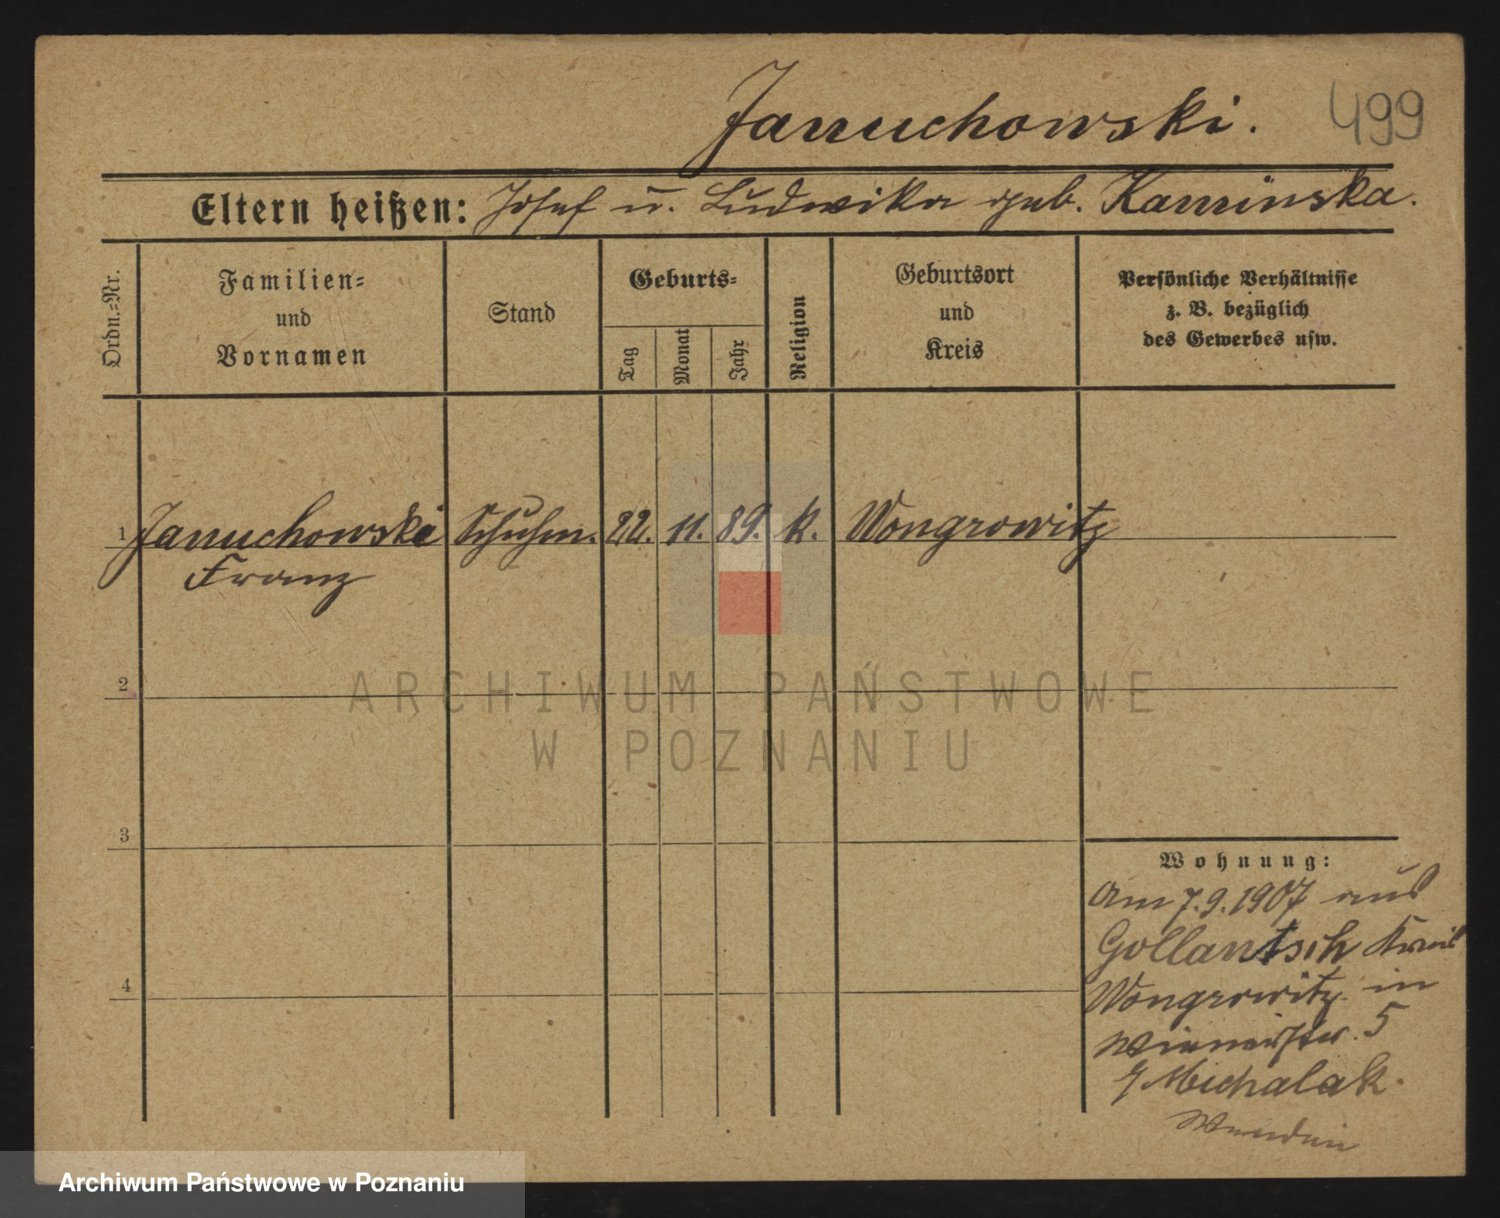 Januchowski.
499
Eltern heißen: Josef u. Ludwika geb. Kaminska.
Ordn.-Nr.
Familien-
und
Vornamen
Stand
Geburts-
Tag
Monat
Jahr
Religion
Geburtsort
und
Kreis
Persönliche Verhältnisse
z. B. bezüglich
des Gewerbes usw.
1 Januchowski Schuhm. 22. 11. 89. k. Wongrowitz
Franz
2
3
4
Wohnung:
Am 7.9.1907 aus
Gollantsch Kreis
Wongrowitz in
Wienerstr. 5
Michalak.
Wenden
ARCHIWUM PAŃSTWOWE
W POZNANIU
Archiwum Państwowe w Poznaniu